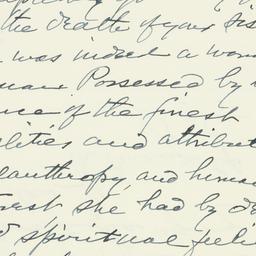 the death of your sis
was indeed a wom
Possessed by
of the finest
lities and attribut
lanthropy, and human
rest she had by de
spiritual feeli